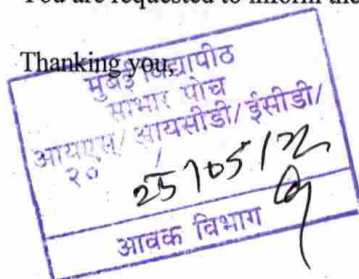 You are requested to inform the
Thanking you,
मुंबई विद्यापीठ
साभार पोच
आयएस/ आयसीडी/ईसीडी/
२०
25/05/22
आवक विभाग